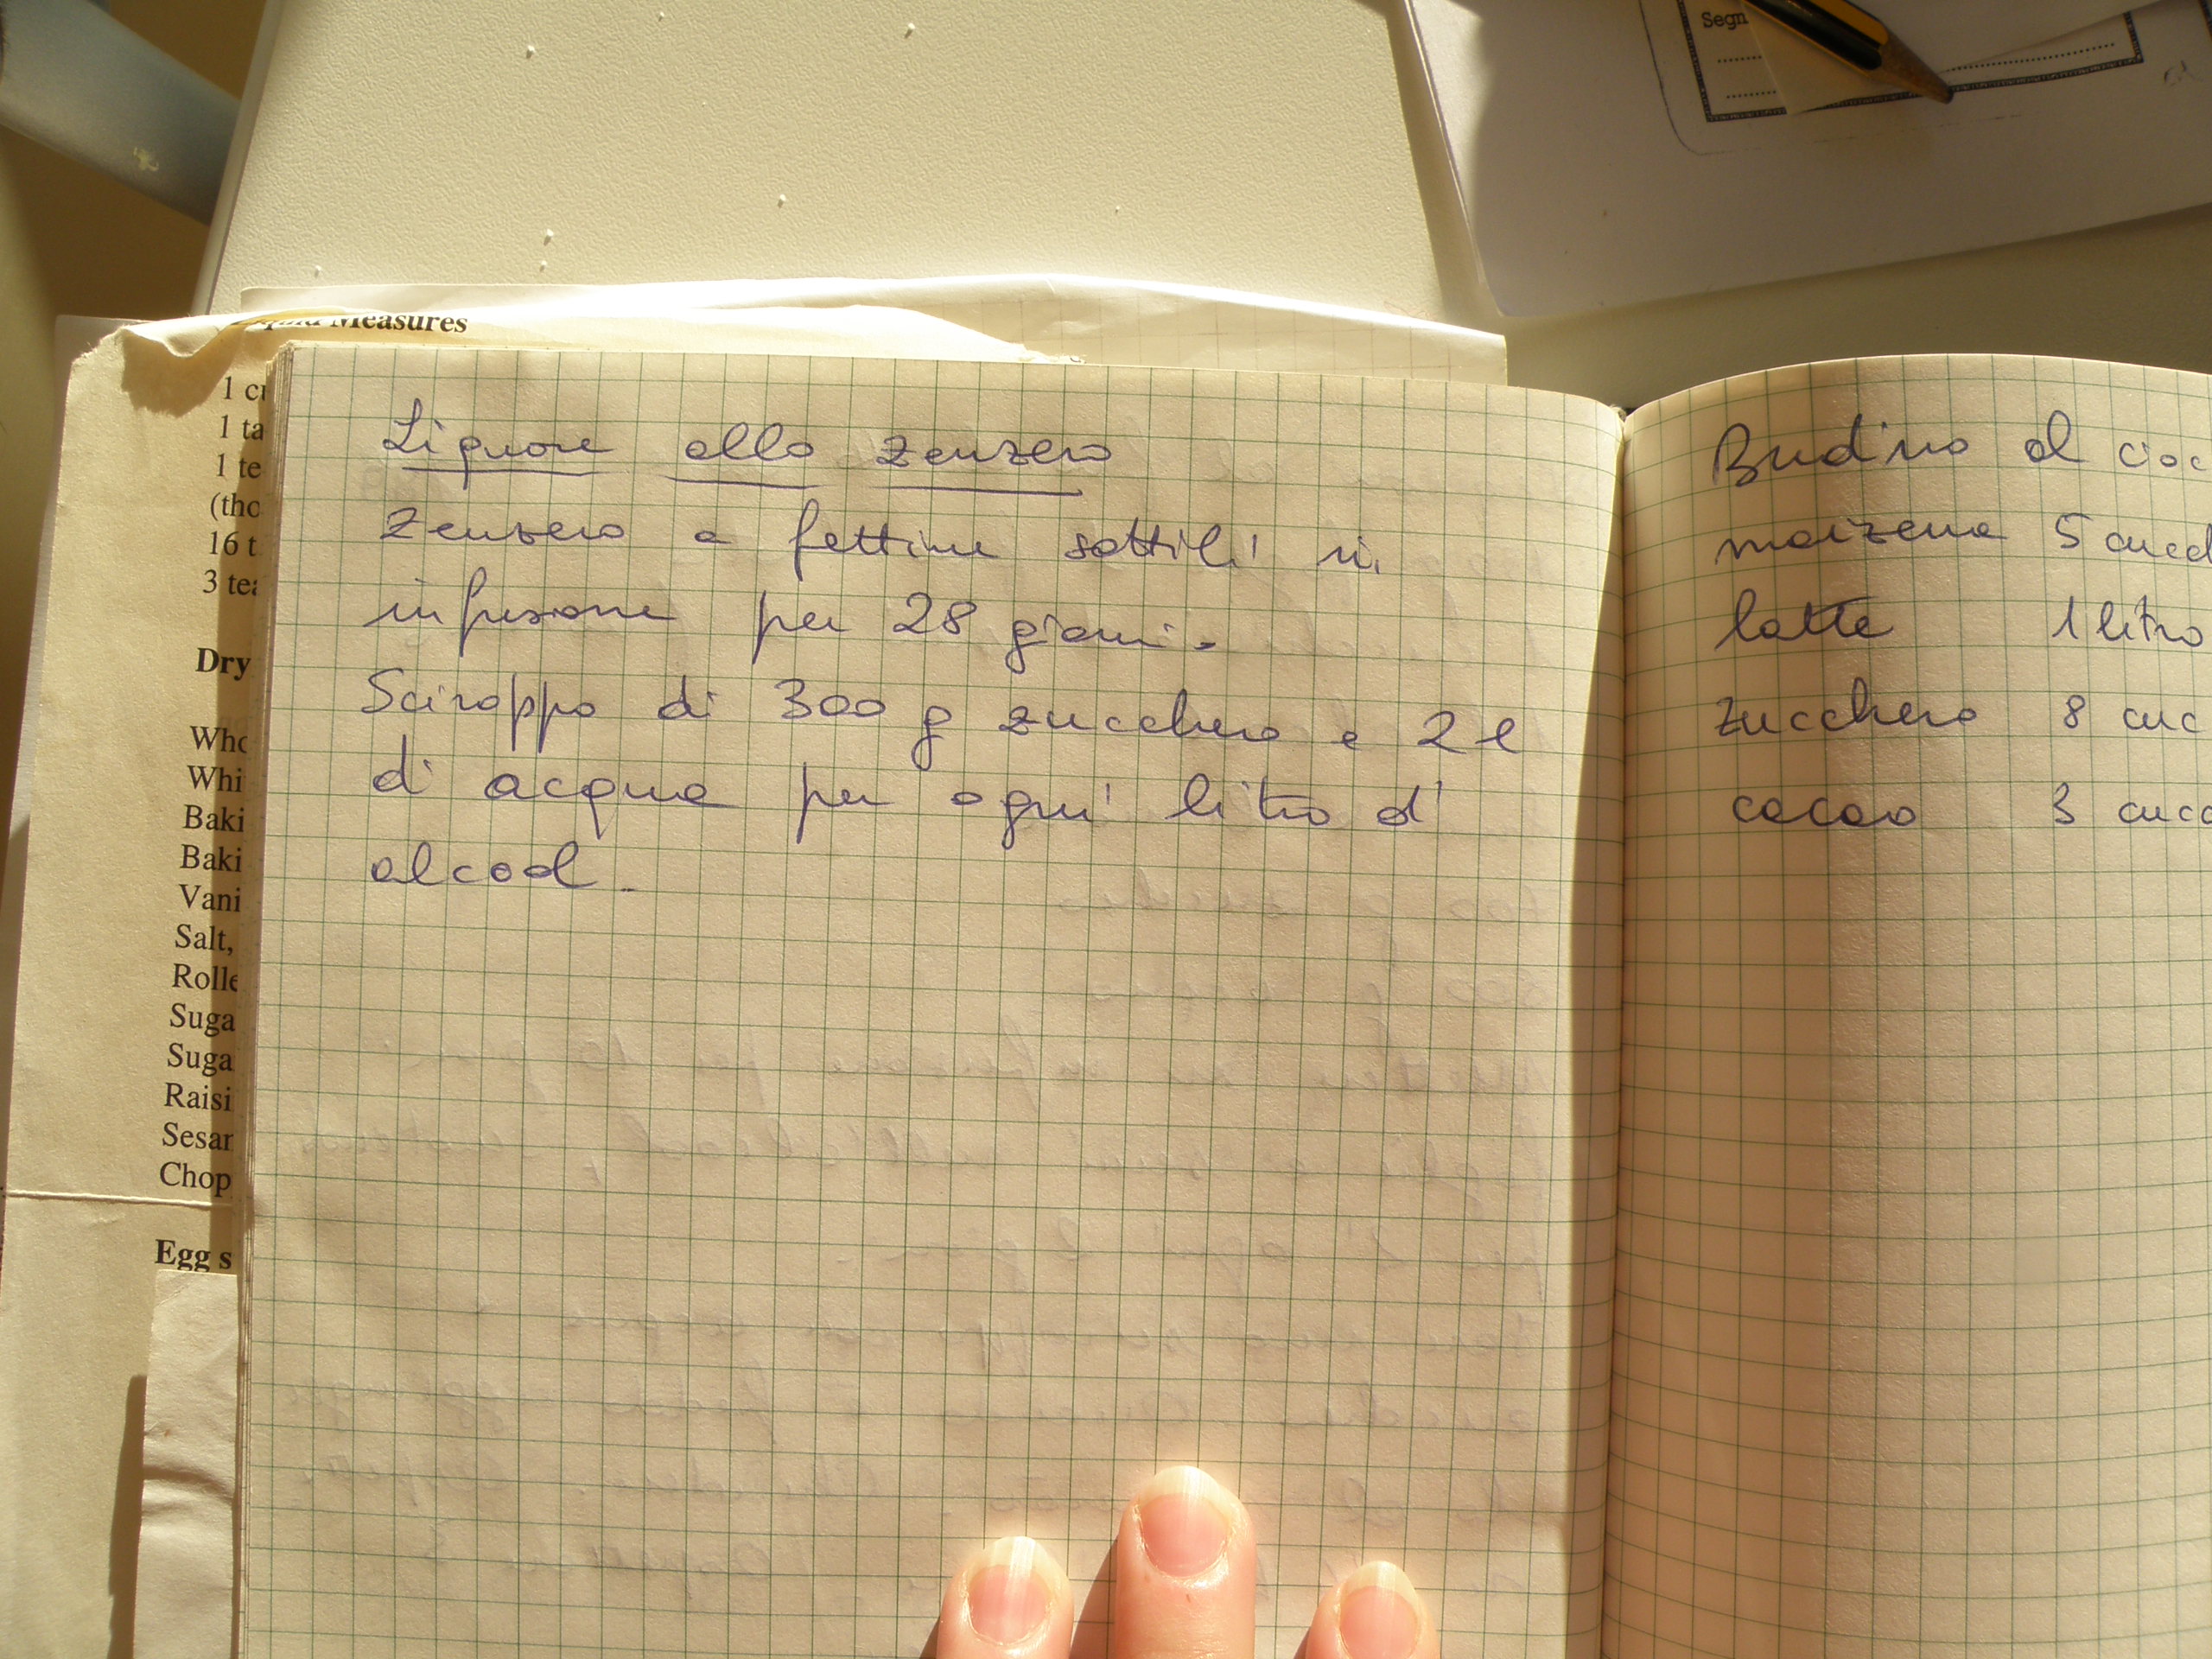 Segn
Measures
1 ta
1 te
(tho
16 t
3 tea
Dry
Who
Whi
Baki
Baki
Vani
Salt,
Rolle
Suga
Suga
Raisi
Sesar
Chop
Egg s
Liquore allo zenzero
Zenzero a fettine sottili in
infusione per 28 giorni.
Sciroppo di 300 g zucchero e 2 l
di acqua per ogni litro di
alcool.
Budino al cioc
maizena 5 cucch
latte 1 litro
zucchero 8 cuc
cacao 3 cucc